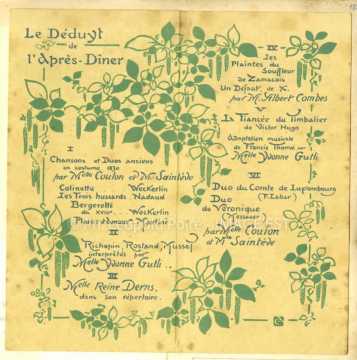 Le Déduyt
de
l'Après-Dîner
I
Chansons et Duos anciens
en costume 1830
par Melle Coulon et Mr Saintède
Colinette Weckerlin
Les Trois hussards Nadaud
Bergerette
du XVIIIe Weckerlin
II
Richepin, Rostand, Musset
interprétés par
Melle Yvonne Guth
III
Melle Reine Derns,
dans son répertoire.
IV
Les
Plaintes du
Souffleur
de Zamacoïs
Un Départ de X.
par Mr Albert Combes
V
La Fiancée du Timbalier
de Victor Hugo
Adaptation musicale
de Francis Thomé
Melle Yvonne Guth
VI
Duo du Comte de Luxembourg
(F. Lehar)
Duo
de Véronique
(Messager)
par Melle Coulon
et Mr Saintède